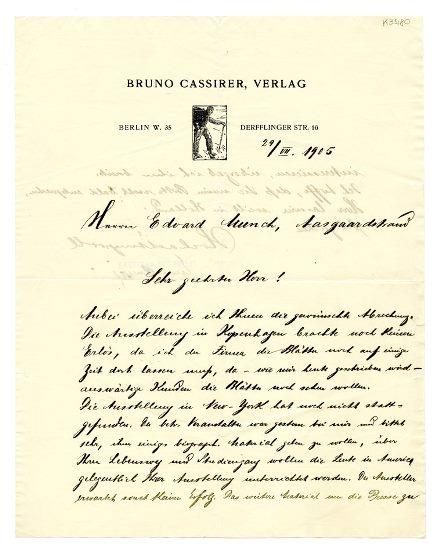 K3580
BRUNO CASSIRER, VERLAG
BERLIN W. 35 DERFFLINGER STR. 16
29/VII. 1905
Herrn Edvard Munch, Aasgaardstrand
Sehr geehrter Herr!
Anbei überreiche ich Ihnen die gewünschte Abrechnung.
Die Ausstellung in Kopenhagen brachte noch keinen
Erlös, da ich die Blätter noch auf einige
Zeit dort lassen muß, da – wie mir heute geschrieben wird –
auswärtige Kunden die Blätter noch sehen wollen.
Die Ausstellung in New-York hat noch nicht statt-
gefunden. Der Veranstalter war gestern bei mir und bittet
sehr, ihm einiges biograph. Material geben zu wollen, über
Ihren Lebensweg und Studiengang wollen die Leute in America
gelegentlich Ihrer Ausstellung unterrichtet werden. Der Aussteller
erwartet sonst keinen Erfolg. Das weitere um die Presse zu